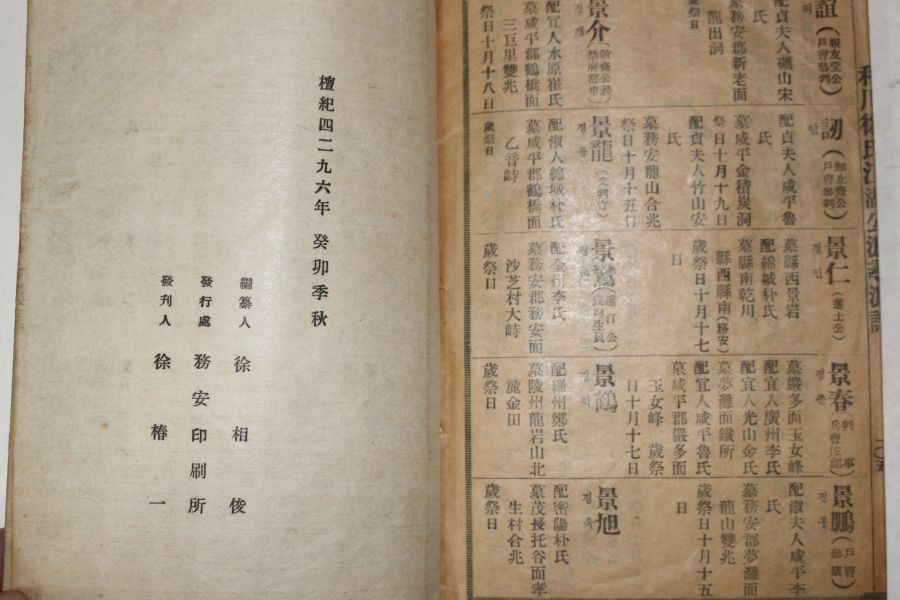 利川徐氏
誼
配貞夫人礪山宋
氏
墓務安郡新老面
龍出洞
歲祭日
景介
配宜人水原崔氏
墓咸平郡鶴橋面
三巨里雙兆
祭日十月十八日
訒
인
配貞夫人咸平魯
氏
墓咸平金積炭洞
祭日十月十九日
配貞夫人竹山安
氏
墓務安龍山合兆
祭日十月十五日
景龍
경룡
配淑人綿城朴氏
墓咸平郡鶴橋面
乙音峙
歲祭日
景仁
경인
墓縣西景岩
配綿城朴氏
墓縣南乾川
縣西縣南(務安)
歲祭日十月十七
日
配金州李氏
墓務安郡務安面
沙芝村大峙
歲祭日
景春
경춘
墓嚴多面玉女峰
配宜人廣州李氏
墓夢灘面鐵所
配宜人光山金氏
配宜人咸平魯氏
墓咸平郡嚴多面
玉女峰 歲祭
日十月十七日
景鶴
경학
配羅州鄭氏
墓陵州龍岩山北
龍金田
歲祭日
景鵬
경붕
(戶曹參議)
配淑夫人咸平李
氏
墓務安郡夢灘面
龍山雙兆
歲祭日十月十五
日
景旭
경욱
配密陽朴氏
墓茂長托谷面孝
生村合兆
歲祭日
檀紀四二九六年 癸卯季秋
編纂人 徐相俊
發行處 務安印刷所
發刊人 徐椿一